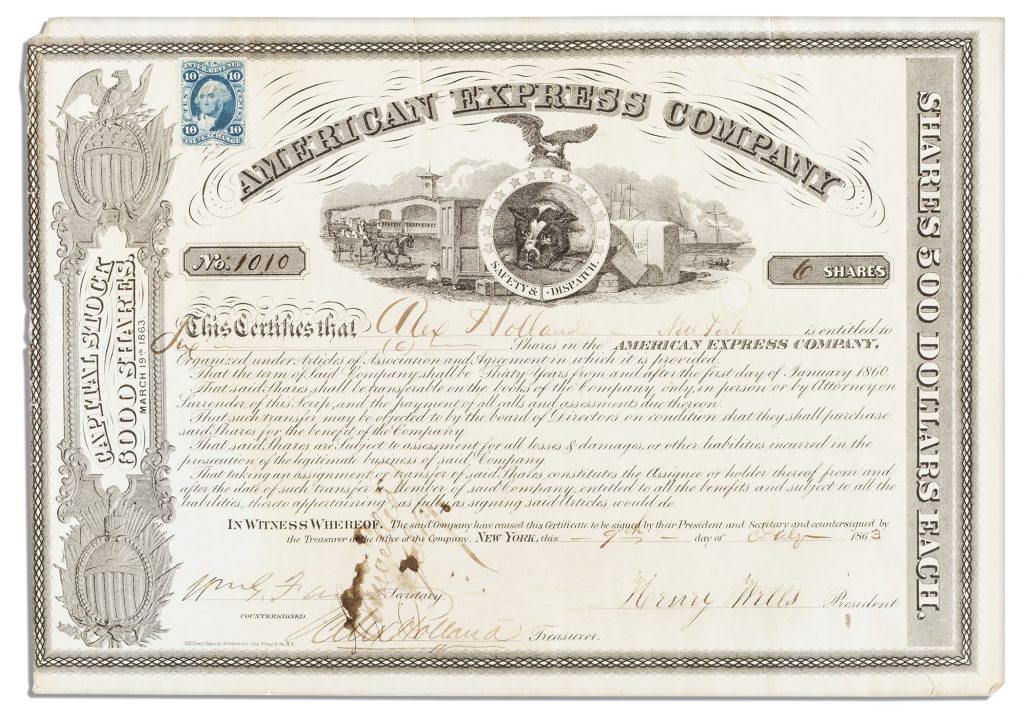 AMERICAN EXPRESS COMPANY
INTER. REVENUE
10 10
TEN CENTS
10 10
CAPITAL STOCK
6000 SHARES.
MARCH 19TH 1863.
SHARES 500 DOLLARS EACH.
SAFETY & DISPATCH.
No. 1010
6 SHARES
This Certifies that Alex Holland New York is entitled to
Six (6) Shares in the AMERICAN EXPRESS COMPANY,
Organized under Articles of Association and Agreement in which it is provided.
That the term of Said Company shall be Thirty Years from and after the first day of January 1860.
That said Shares, shall be transferable on the books of the Company only, in person or by Attorney on
Surrender of this Scrip, and the payment of all calls and assessments due thereon.
That such transfer may be objected to by the board of Directors on condition that they shall purchase
said Shares for the benefit of the Company.
That said Shares are Subject to assessment for all losses & damages, or other liabilities incurred in the
prosecution of the legitimate business of said Company.
That taking an assignment or transfer of said Shares constitutes the Assignee or holder thereof from and
after the date of such transfer a Member of said Company, entitled to all the benefits and subject to all the
liabilities, thereto appertaining, as fully as signing said Articles would do.
IN WITNESS WHEREOF, The said Company have caused this Certificate to be signed by their President and Secretary and countersigned by
the Treasurer at the Office of the Company, NEW YORK, this 9th day of July 1863
Secretary. Henry Wells President.
COUNTERSIGNED.
Alex Holland Treasurer.